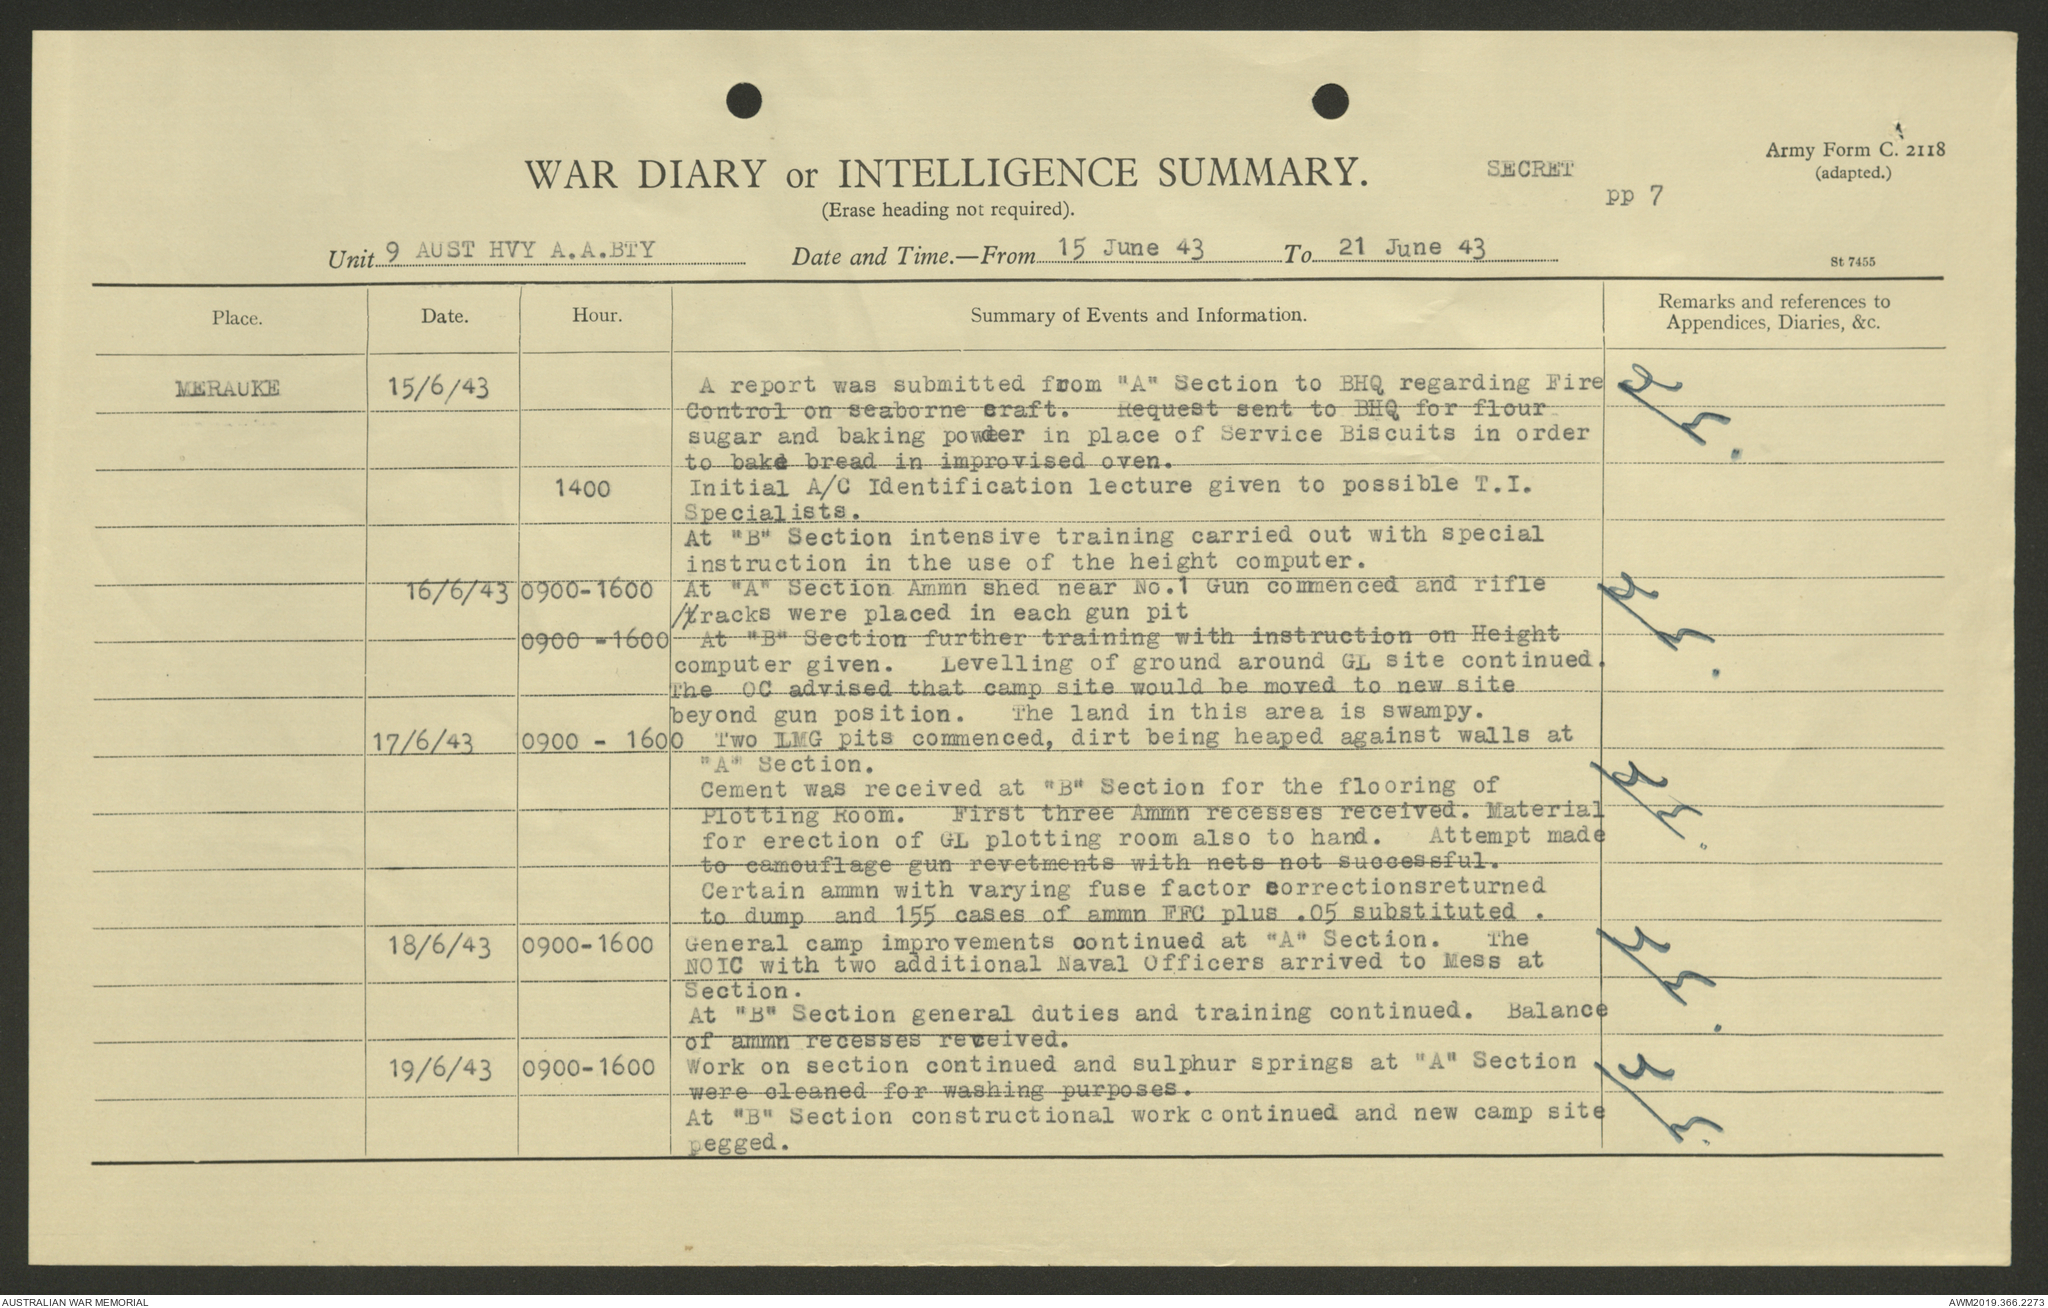 WAR DIARY or INTELLIGENCE SUMMARY.
(Erase heading not required).
SECRET
pp 7
Army Form C. 2118
(adapted.)
Unit 9 AUST HVY A.A.BTY Date and Time.—From 15 June 43 To 21 June 43
St 7455
Place. Date. Hour. Summary of Events and Information. Remarks and references to
Appendices, Diaries, &c.
MERAUKE 15/6/43 A report was submitted from "A" Section to BHQ regarding Fire
Control on seaborne craft. Request sent to BHQ for flour
sugar and baking powder in place of Service Biscuits in order
to bake bread in improvised oven.
1400 Initial A/C Identification lecture given to possible T.I.
Specialists.
At "B" Section intensive training carried out with special
instruction in the use of the height computer.
16/6/43 0900-1600 At "A" Section Ammn shed near No.1 Gun commenced and rifle
/tracks were placed in each gun pit
0900 -1600 At "B" Section further training with instruction on Height
computer given. Levelling of ground around GL site continued.
The OC advised that camp site would be moved to new site
beyond gun position. The land in this area is swampy.
17/6/43 0900 - 1600 Two LMG pits commenced, dirt being heaped against walls at
"A" Section.
Cement was received at "B" Section for the flooring of
Plotting Room. First three Ammn recesses received. Material
for erection of GL plotting room also to hand. Attempt made
to camouflage gun revetments with nets not successful.
Certain ammn with varying fuse factor correctionsreturned
to dump and 155 cases of ammn FFC plus .05 substituted .
18/6/43 0900-1600 General camp improvements continued at "A" Section. The
NOIC with two additional Naval Officers arrived to Mess at
Section.
At "B" Section general duties and training continued. Balance
of ammn recesses received.
19/6/43 0900-1600 Work on section continued and sulphur springs at "A" Section
were cleaned for washing purposes.
At "B" Section constructional work c ontinued and new camp site
pegged.
AUSTRALIAN WAR MEMORIAL
AWM2019.366.2273